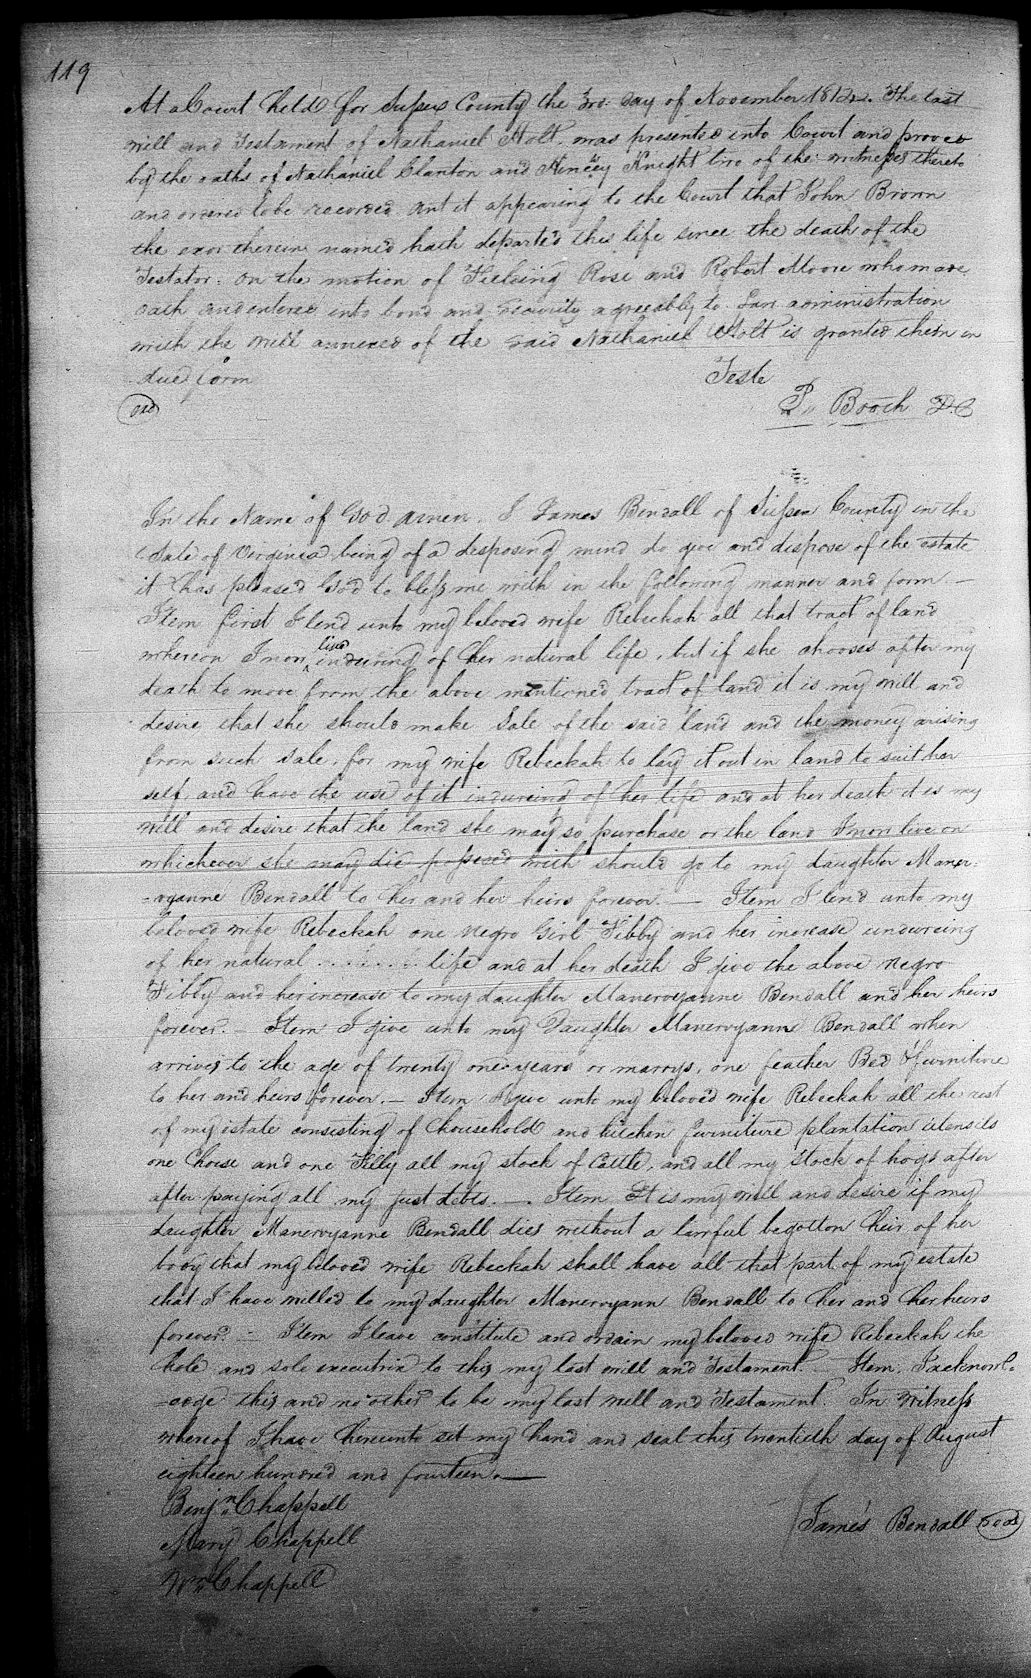 119
At a Court held for Sussex County the 3rd: day of November 1814. The last
will and Testament of Nathaniel Holt, was presented into Court and proved
by the oaths of Nathaniel Clanton and Knight two of the witnesses thereto
and ordered to be recorded. and it appearing to the Court that John Brown
the exor therein named hath departed this life since the death of the
Testator. On the motion of Fielding Rose and Robert Moore who made
oath and entered into bond and security agreeably to Law administration
with the Will annexed of the said Nathaniel Holt is granted them in
due form
Teste
Booth DC
In the Name of God amen. I James Bendall of Sussex County in the
State of Virginia being of a desposing mind do give and dispose of the estate
it has pleased God to bless me with in the following manner and form
Item first I lend unto my beloved wife Rebeckah all that tract of land
whereon I now lived induring of her natural life, but if she chooses after my
death to move from the above mentioned tract of land it is my will and
desire that she should make Sale of the said land and the money arising
from such sale, for my wife Rebeckah to lay it out in land to suit her
self, and have the use of it indureing of her life and at her death it is my
will and desire that the land she may so purchase or the land I now live on
whichever she may die possesed with should go to my daughter Maner=
=vyanne Bendall to her and her heirs forever. — Item I lend unto my
beloved wife Rebeckah one negro Girl Tibby and her increase indureing
of her natural . . . . . . . life and at her death I give the above negro
Tibby and her increase to my daughter Manervyanne Bendall and her heirs
forever. — Item I give unto my Daughter Manervyann Bendall when
arrives to the age of twenty one years or marrys, one feather Bed & furniture
to her and heirs forever. — Item I give unto my beloved wife Rebeckah all the rest
of my estate consisting of household and kitchen furniture plantation utensils
one horse and one Filly all my stock of Cattle, and all my stock of hogs after
after paying all my just debts. — Item It is my will and desire if my
daughter Manervyanne Bendall dies without a lawful begotton heir of her
body that my beloved wife Rebeckah shall have all that part of my estate
that I have willed to my daughter Manervyann Bendall to her and her heirs
forever. — Item I leave constitute and ordain my beloved wife Rebeckah the
hole and sole executrix to this my last will and Testament Item I acknowl=
=edge this and no other to be my last will and Testament. In Witness
whereof I have hereunto set my hand and seal this twentieth day of August
eighteen hundred and fourteen. —
Benjn. Chappell
James Bendall seal
Mary Chappell
Wm Chappell